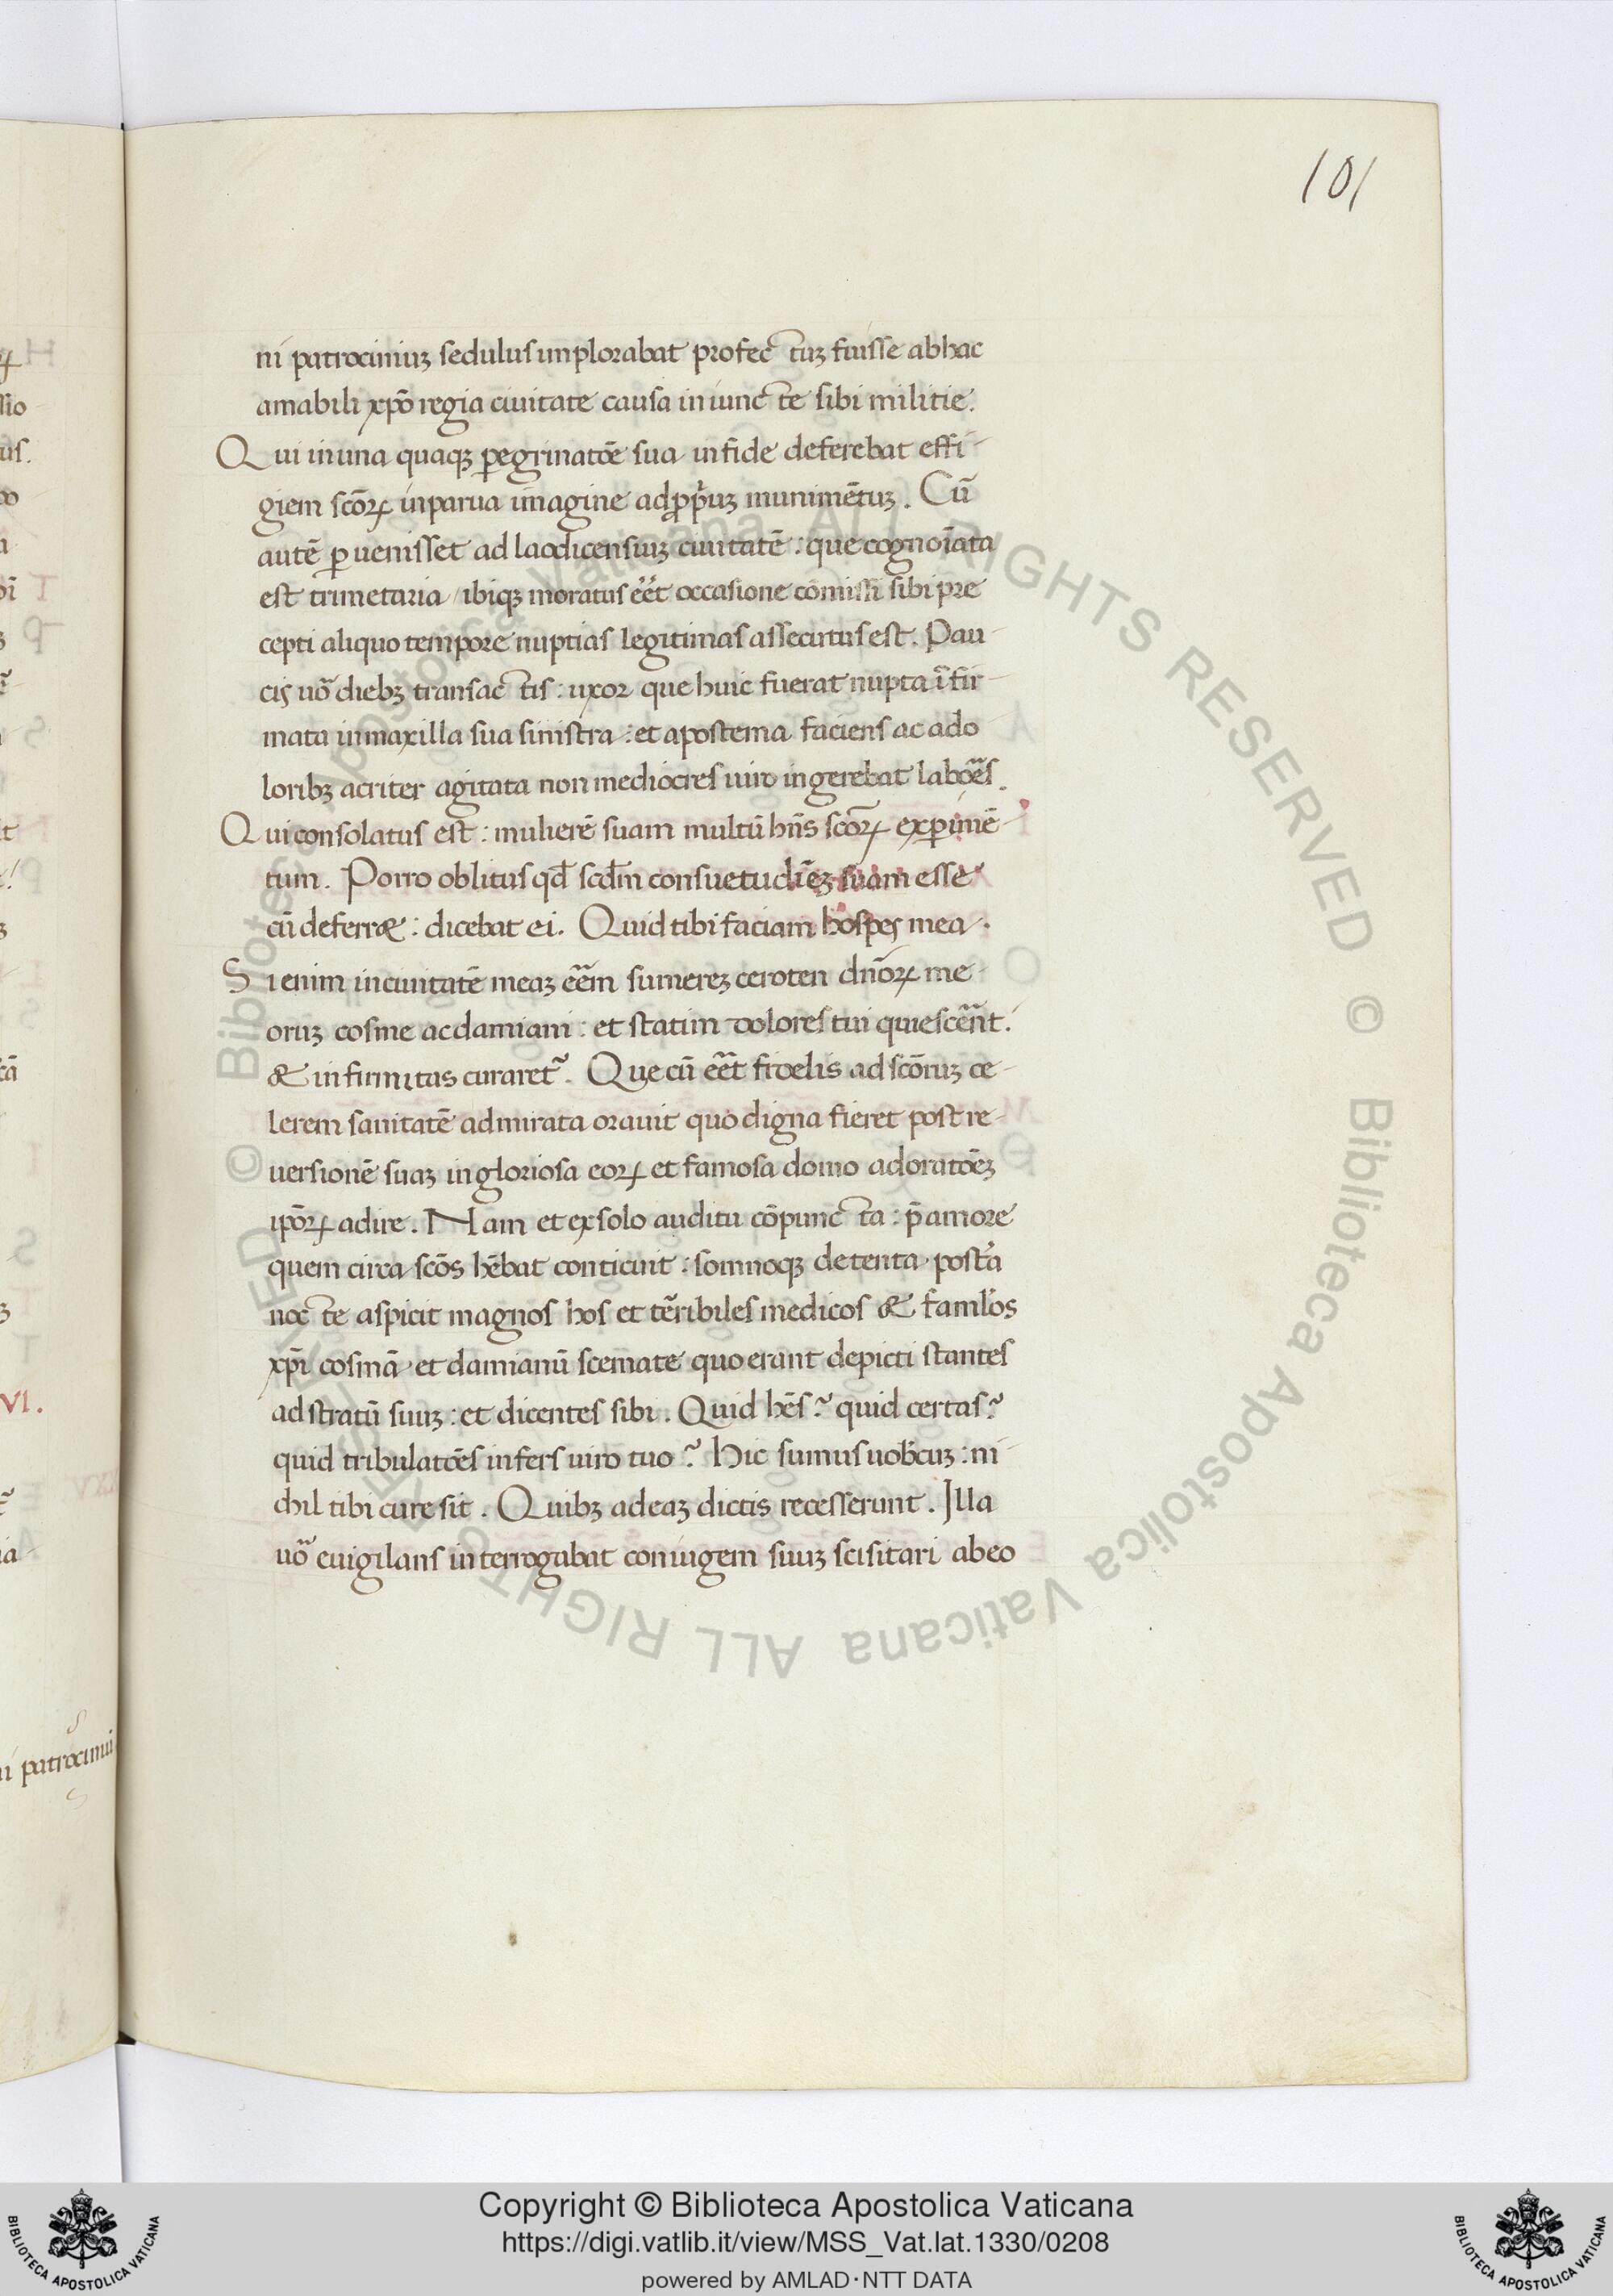 101
ni patrociniuꝫ sedulus implorabat profectuꝫ fuisse ab hac
amabili xp̄o regia ciuitate causa iniuncte sibi militie.
Qui in una quaqꝫ ꝑegrinatōe sua in fide deferebat effi-
giem scōꝝ in parua imagine ad ꝓpͥuꝫ munimētuꝫ. Cū
autē ꝑuenisset ad laodicensiuꝫ ciuitatē: que cognoīata
est trimetaria / ibiqꝫ moratus eēt occasione cōmissi sibi pre
cepti aliquo tempore nuptias legitimas assecutus est. Pau-
cis uo᷎ diebꝫ transactis: uxor que huic fuerat nupta īfir-
mata in maxilla sua sinistra: et apostema faciens ac a do
loribꝫ acriter agitata non mediocres uiro ingerebat labōes.
Qui consolatus est: mulierē suam multū hn̄s scōꝝ exꝑimē-
tum. Porro oblitus qd̄ scd̄m consuetudīeꝫ suam esse
cū deferret: dicebat ei. Quid tibi faciam hospes mea.
Si enim in ciuitatē meaꝫ eēm sumereꝫ ceroten dn̄oꝝ me-
oruꝫ cosme ac damiani: et statim dolores tui quiescēnt.
& infirmitas curaret᷑. Que cū eēt fidelis ad scōruꝫ ce-
lerem sanitatē admirata orauit quo digna fieret post re-
uersionē suaꝫ in gloriosa eoꝝ et famosa domo adoratōeꝫ
ip̄oꝝ adire. Nam et ex solo auditu cōpuncta: p̄ amore
quem circa scōs hēbat conticuit: somnoqꝫ detenta postͣa
nocte aspicit magnos hos et tēribiles medicos & famlōs
xp̄i cosmā et damianū scemate quo erant depicti stantes
ad stratū suuꝫ: et dicentes sibi. Quid hēs? quid certas?
quid tribulatōes infers uiro tuo? Hic sumus uobcuꝫ: ni-
chil tibi cure sit. Quibꝫ ad eaꝫ dictis recesserunt. Illa
uo᷎ euigilans interrogabat coniugem suuꝫ scisitari ab eo
VI.
ni patrociniu
© Biblioteca Apostolica Vaticana ALL RIGHTS RESERVED © Biblioteca Apostolica Vaticana ALL RIGHTS RESERVED
Copyright © Biblioteca Apostolica Vaticana
https://digi.vatlib.it/view/MSS_Vat.lat.1330/0208
powered by AMLAD·NTT DATA
BIBLIOTECA APOSTOLICA VATICANA
BIBLIOTECA APOSTOLICA VATICANA